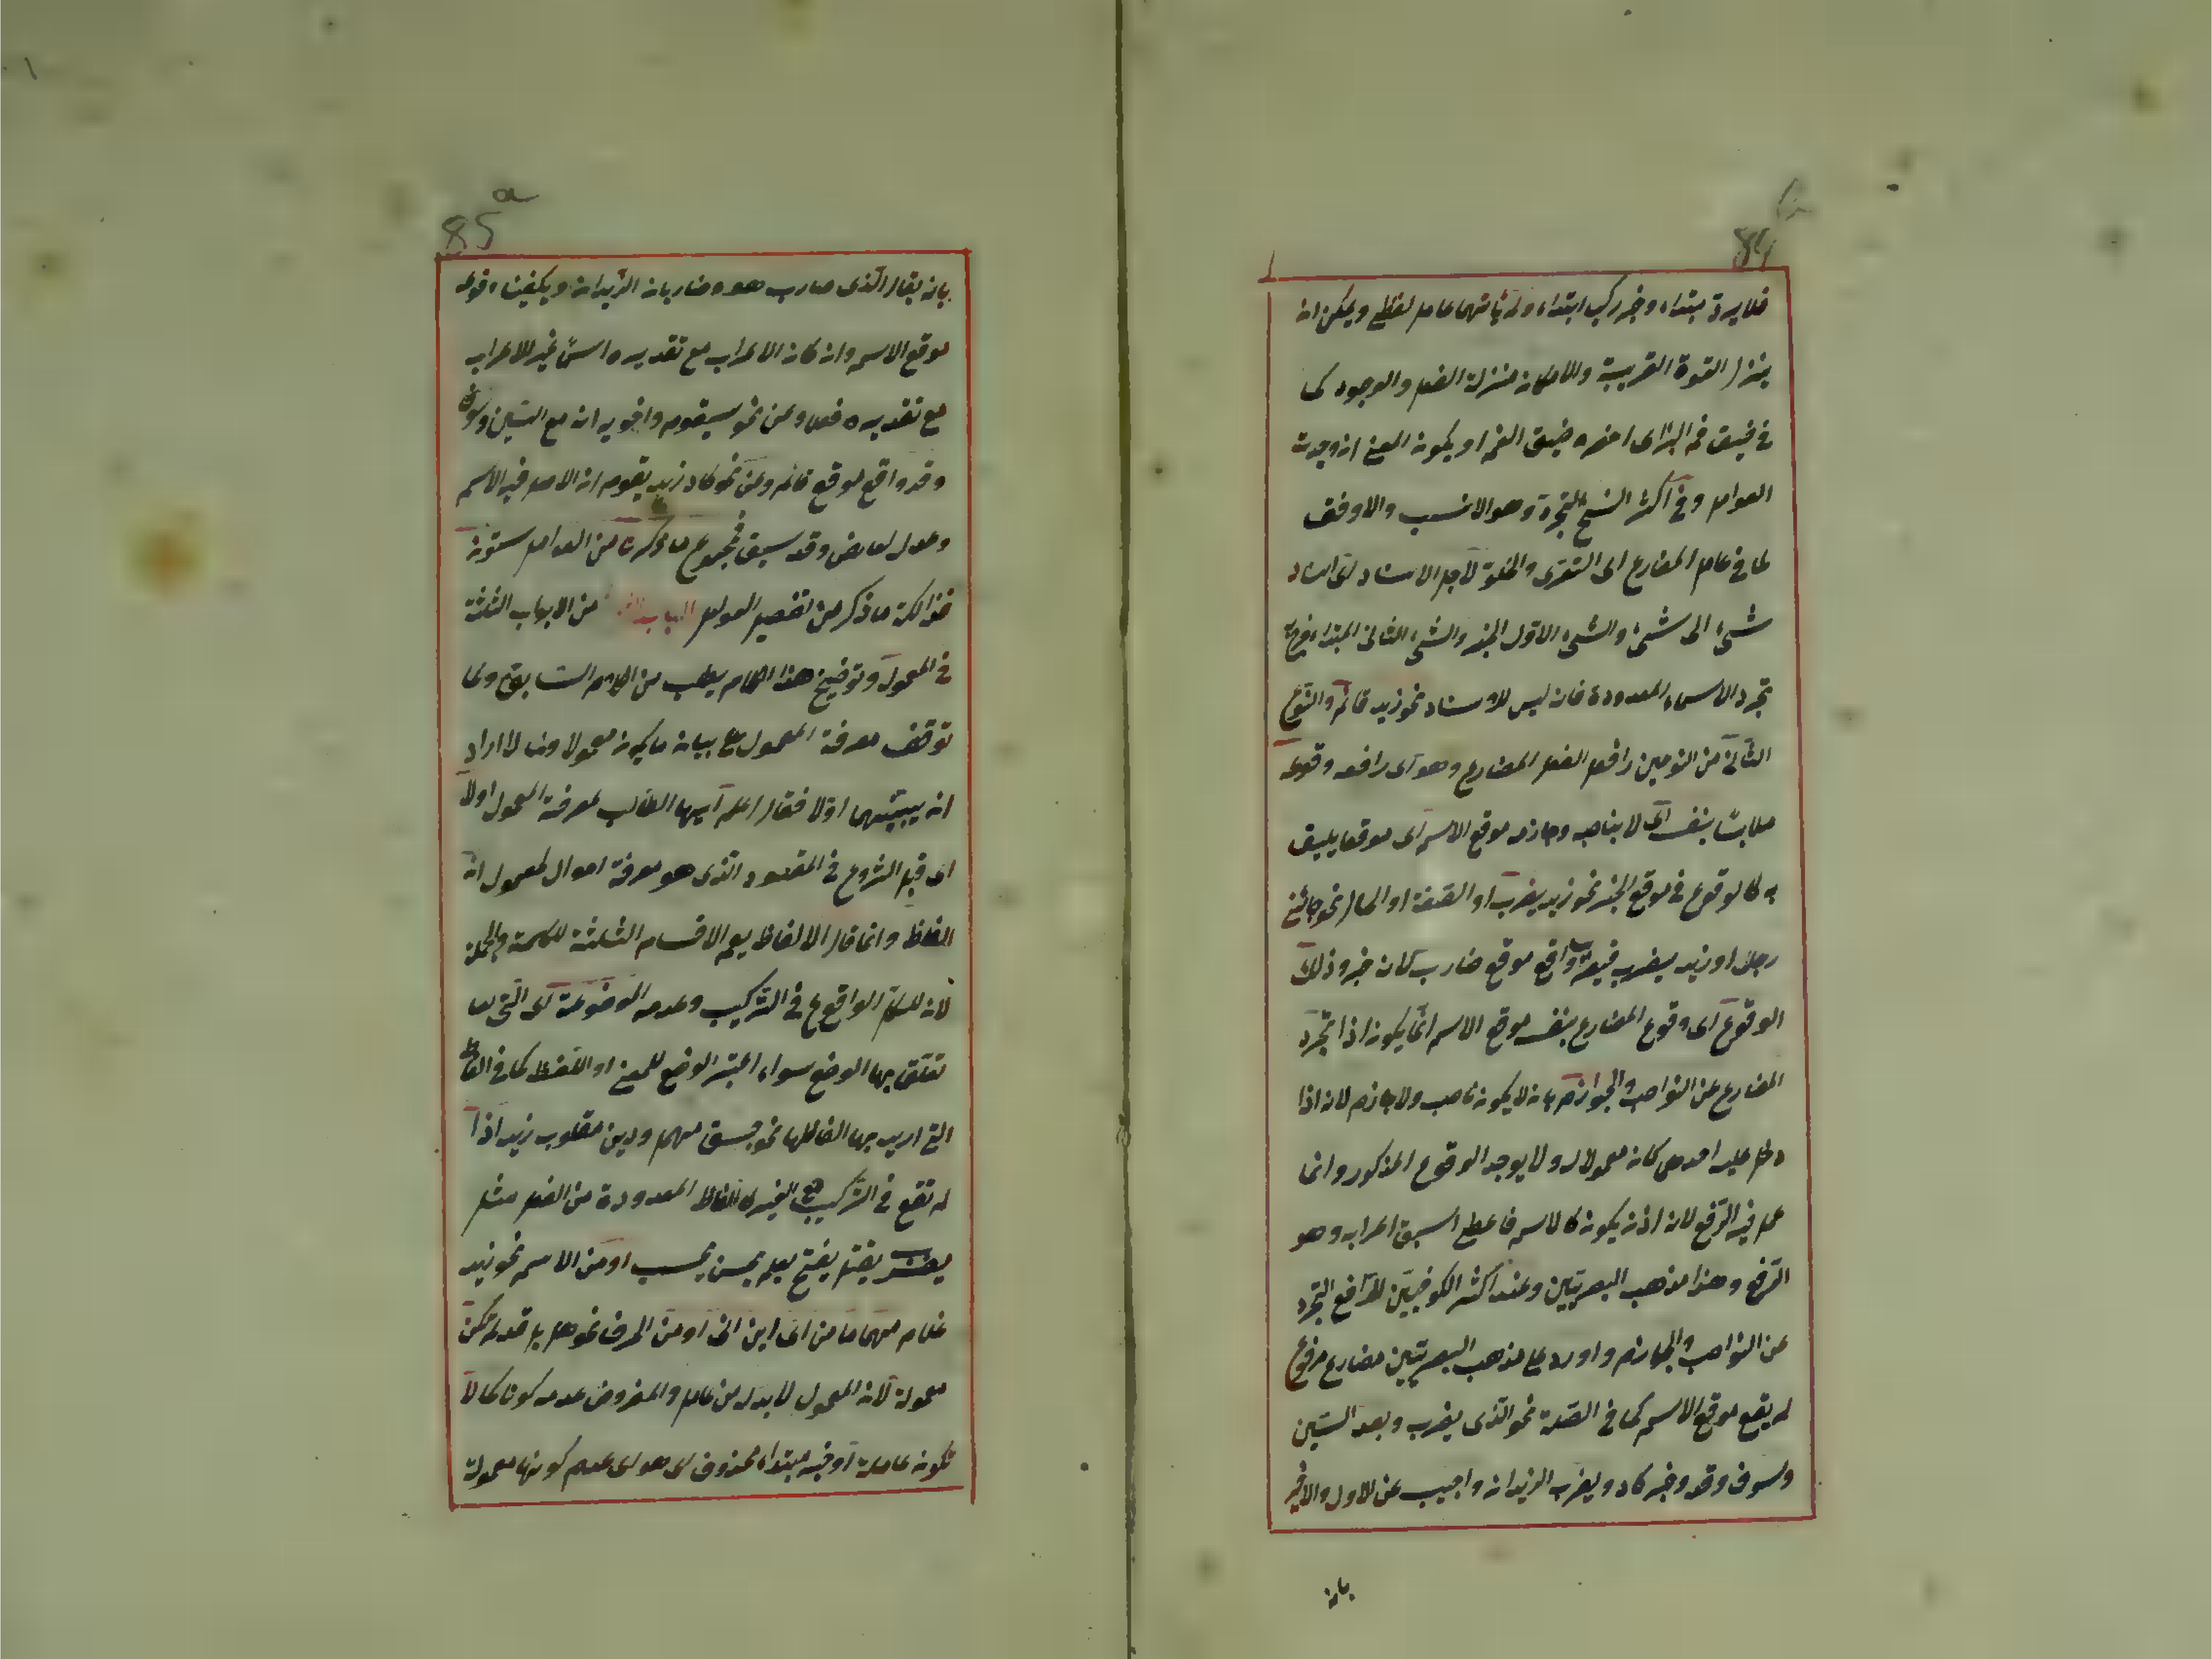 84
فلا يرد مبتداء وخبر ركب ابتداء ولم يأتهما عامل لفظي ويمكن ان
ينزل القوة القريبة والامكان منزلة الفعل والوجود كما
في ضيق فم البئر اى احفره ضيق الفم او يكون المعنى ان وجدت
العوامل وفي اكثر النسخ التجرد وهو الانسب والاوفق
لما في عامل المضارع اى التعرى والخلوة لاجل الاسناد اى اسناد
شئ الى شئ والشئ الاول الخبر والشئ الثانى المبتداء فخرج
تجرد الاسماء المعدودة فانه ليس للاسناد نحو زيد قائم والنوع
الثانى من النوعين رافع الفعل المضارع وهو اى رافعه وقوعه
ملابسا بنفسه اى لا بناصبه وجازمه موقع الاسم اى موقعا يليق
به كالوقوع في موقع الخبر نحو زيد يضرب او الصفة او الحال نحو جائنى
رجل او زيد يضرب فيضرب واقع موقع ضارب كان خبر وذلك
الوقوع اى وقوع المضارع بنفسه موقع الاسم انما يكون اذا تجرد
المضارع عن النواصب والجوازم بان لا يكون ناصب ولا جازم لانه اذا
دخل عليه احدهم كان معمولا له ولا يوجد الوقوع المذكور وانما
عمل فيه الرفع لانه اذن يكون كالاسم فاعطى اسبق اعرابه وهو
الرفع وهذا مذهب البصريين وعند اكثر الكوفيين الرافع التجرد
عن النواصب والجوازم واورد على مذهب البصريين مضارع مرفوع
لم يقع موقع الاسم كما في الصلة نحو الذى يضرب وبعد السين
وسوف وقد وخبر كاد ويضرب الزيدان واجيب عن الاول والاخير
بان
85 a
بان يقال الذى ضارب هو وضاربان الزيدان ويكفينا وقوعه
موقع الاسم وان كان الاعراب مع تقديره اسما غير الاعراب
مع تقديره فعلا وعن نحو سيقوم واخويه ان مع السين وسوف
وقد واقع موقع قائم وعن نحو كاد زيد يقوم ان الاصل فيه الاسم
وعدل لعارض وقد سبق فمجموع ما ذكرنا من العوامل ستون
فذلكة ما ذكر من تفصيل العوامل الباب الثانى من الابواب الثلثة
في المعمول وتوضيح هذا المقام يطلب من الكلام السابق ولما
توقف معرفة المعمول على بيان ما يكون معمولا وما لا اراد
ان يبينهما اولا فقال اعلم ايها الطالب لمعرفة المعمول اولا
اى قبل الشروع في المقصود الذى هو معرفة احوال المعمول ان
الالفاظ وانما قال الالفاظ يعم الاقسام الثلثة للكلمة والجملة
لان للكل الواقع في التركيب وعدمه الموضوعة اى التى لها
تعلق بها الوضع سواء اعتبر الوضع للمعنى او اللفظ كما في الفاظ
التى اريد بها الفاظها نحو جسق مهمل وديز مقلوب زيد اذا
لم تقع في التركيب مع الغير كالالفاظ المعدودة من الفعل مثل
يضرب يقتل يفتح يعلم يحسن يحسب او من الاسم نحو زيد
غلام مهما ما من اى اين انى او من الحرف نحو هل بل قد لم تكن
معمولة لان المعمول لا بد له من عامل والمفروض عدمه كونا كما لا
تكون عاملة او خبر مبتداء محذوف اى هو اى عدم كونها معمولة